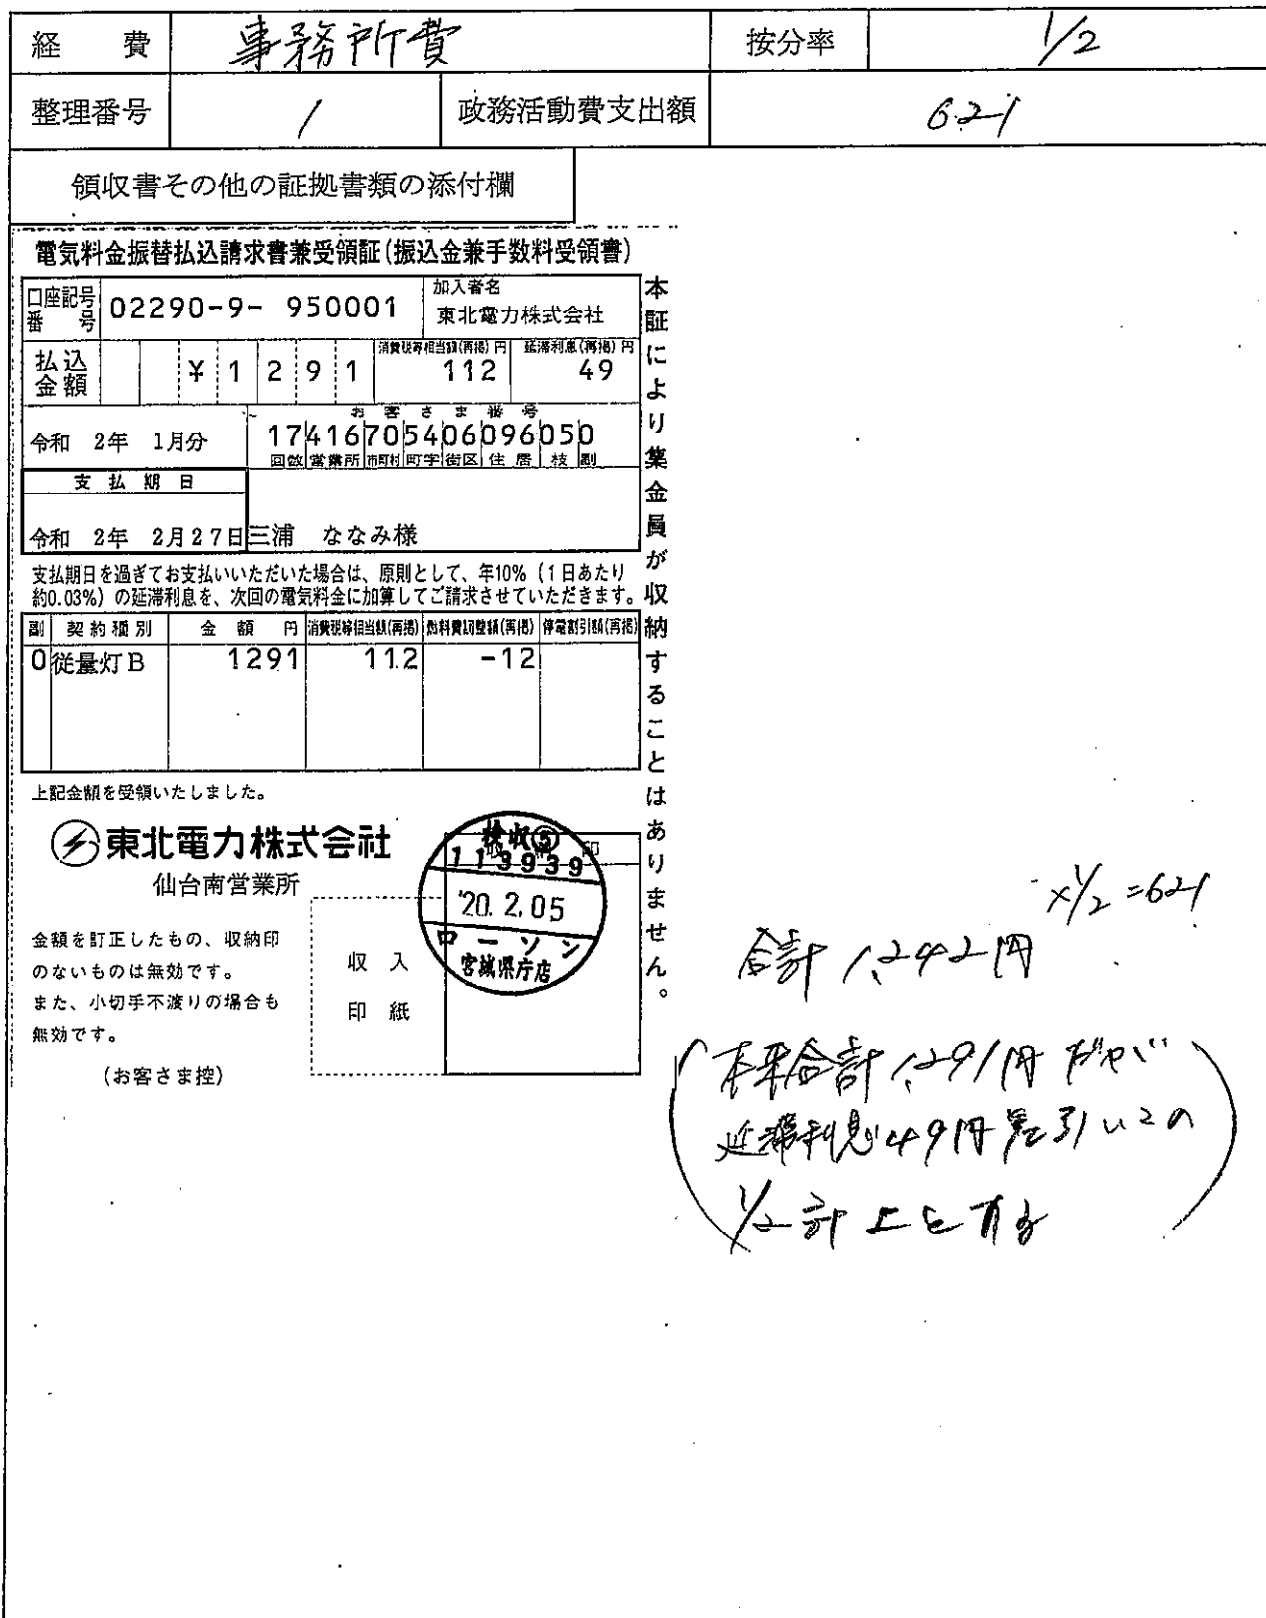 経 費 事務所費 按分率 1/2
整理番号 1 政務活動費支出額 621
領収書その他の証拠書類の添付欄
電気料金振替払込請求書兼受領証(振込金兼手数料受領書)
口座記号番号 02290-9- 950001 加入者名 東北電力株式会社
払込金額 ¥1291 消費税等相当額(再掲)円 112 延滞利息(再掲)円 49
令和 2年 1月分 お客さま番号 17 416 705 406 096 050
回数 営業所 市町村 町字 街区 住居 枝 副
支払期日
令和 2年 2月27日 三浦 ななみ様
支払期日を過ぎてお支払いいただいた場合は、原則として、年10%(1日あたり
約0.03%)の延滞利息を、次回の電気料金に加算してご請求させていただきます。
副 契約種別 金額 円 消費税等相当額(再掲) 燃料費調整額(再掲) 停電割引額(再掲)
0 従量灯B 1291 112 -12
本証により集金員が収納することはありません。
上記金額を受領いたしました。
東北電力株式会社
仙台南営業所
収納印
検収⑤
113939
'20.2.05
ローソン
宮城県庁店
金額を訂正したもの、収納印
のないものは無効です。
また、小切手不渡りの場合も
無効です。
(お客さま控)
収入
印紙
×1/2=621
合計 1,242円
(本来合計1,291円だが
延滞利息49円差引いての
1/2計上とする)